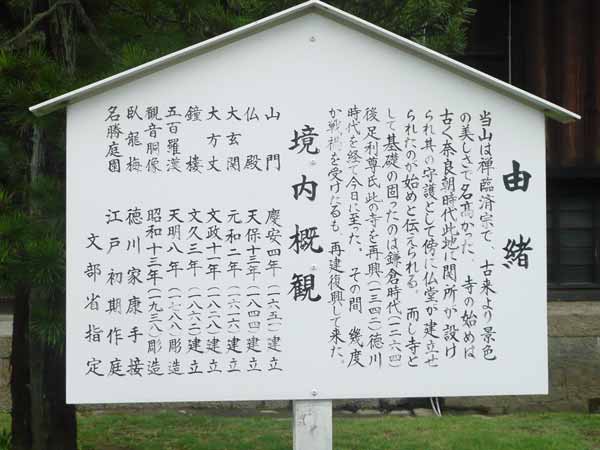 由緒
当山は禅臨済宗で、古来より景色
の美しさで名高かった、寺の始めは
古く奈良朝時代此地に関所が設け
られ其の守護として傍に仏堂が建立せ
られたのが始めと伝えられる。而し寺と
して基礎の固ったのは鎌倉時代(一二六四)
後足利尊氏此の寺を再興(一三四二)徳川
時代を経て今日に至った。その間 幾度
か戦禍を受けたるも、再建復興して来た。
境内概観
山門 慶安四年(一六五一)建立
仏殿 天保十三年(一八四四)建立
大玄関 元和二年(一六一六)建立
大方丈 文政十一年(一八二八)建立
鐘楼 文久三年(一八六二)建立
五百羅漢 天明八年(一七八八)彫造
観音胴像 昭和十三年(一九三八)彫造
臥龍梅 徳川家康手接
名勝庭園 江戸初期作庭
文部省指定